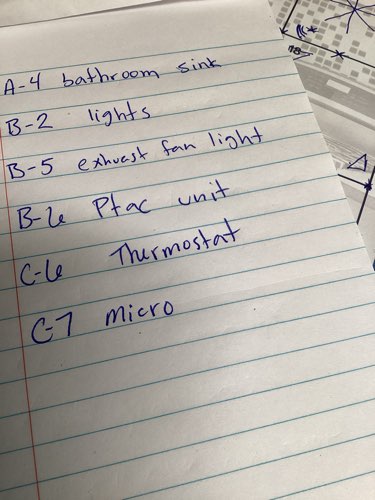 A-4 bathroom sink
B-2 lights
B-5 exhuest fan light
B-6 Ptac unit
C-6 Thermostat
C-7 micro
18